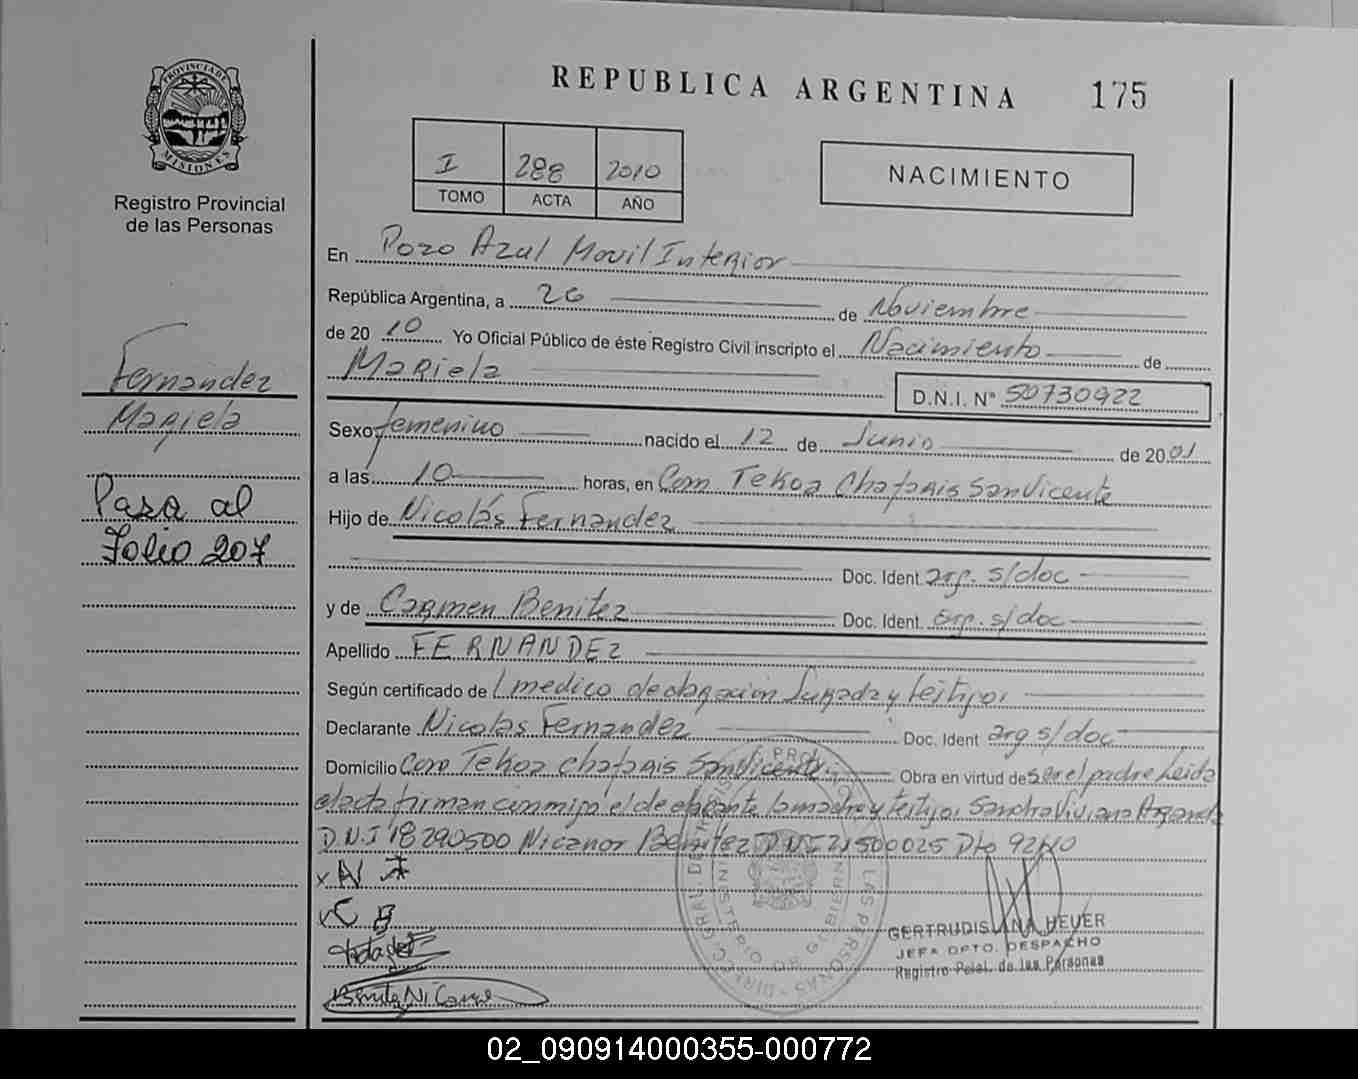 REPUBLICA ARGENTINA 175
PROVINCIA DE MISIONES
Registro Provincial
de las Personas
I 288 2010
TOMO ACTA AÑO
NACIMIENTO
Fernandez
Mariela
Pasa al
Folio 207
En Pozo Azul Movil Interior
República Argentina, a 26 de Noviembre
de 20 10 Yo Oficial Público de éste Registro Civil inscripto el Nacimiento de
Mariela D.N.I. Nº 50730922
Sexo femenino nacido el 12 de Junio de 20 01
a las 10 horas, en Com Tekoa Chafariz San Vicente
Hijo de Nicolás Fernandez
Doc. Ident. arg. s/doc
y de Carmen Benitez Doc. Ident. arg. s/doc
Apellido FERNANDEZ
Según certificado de medico declaracion Jurada y testigos
Declarante Nicolas Fernandez Doc. Ident arg s/doc
Domicilio Com Tekoa Chafariz San Vicente Obra en virtud de Ser el padre Leida
el acta firman conmigo el declarante la madre y testigos Sandra Viviana
D.N.I 18290500 Nicanor Benitez DNI 21500025 Dto 92/10
x N F
x C B
Benitez Nicanor
GERTRUDIS ANA HEUER
JEFA DPTO. DESPACHO
Registro Pcial. de las Personas
02_090914000355-000772